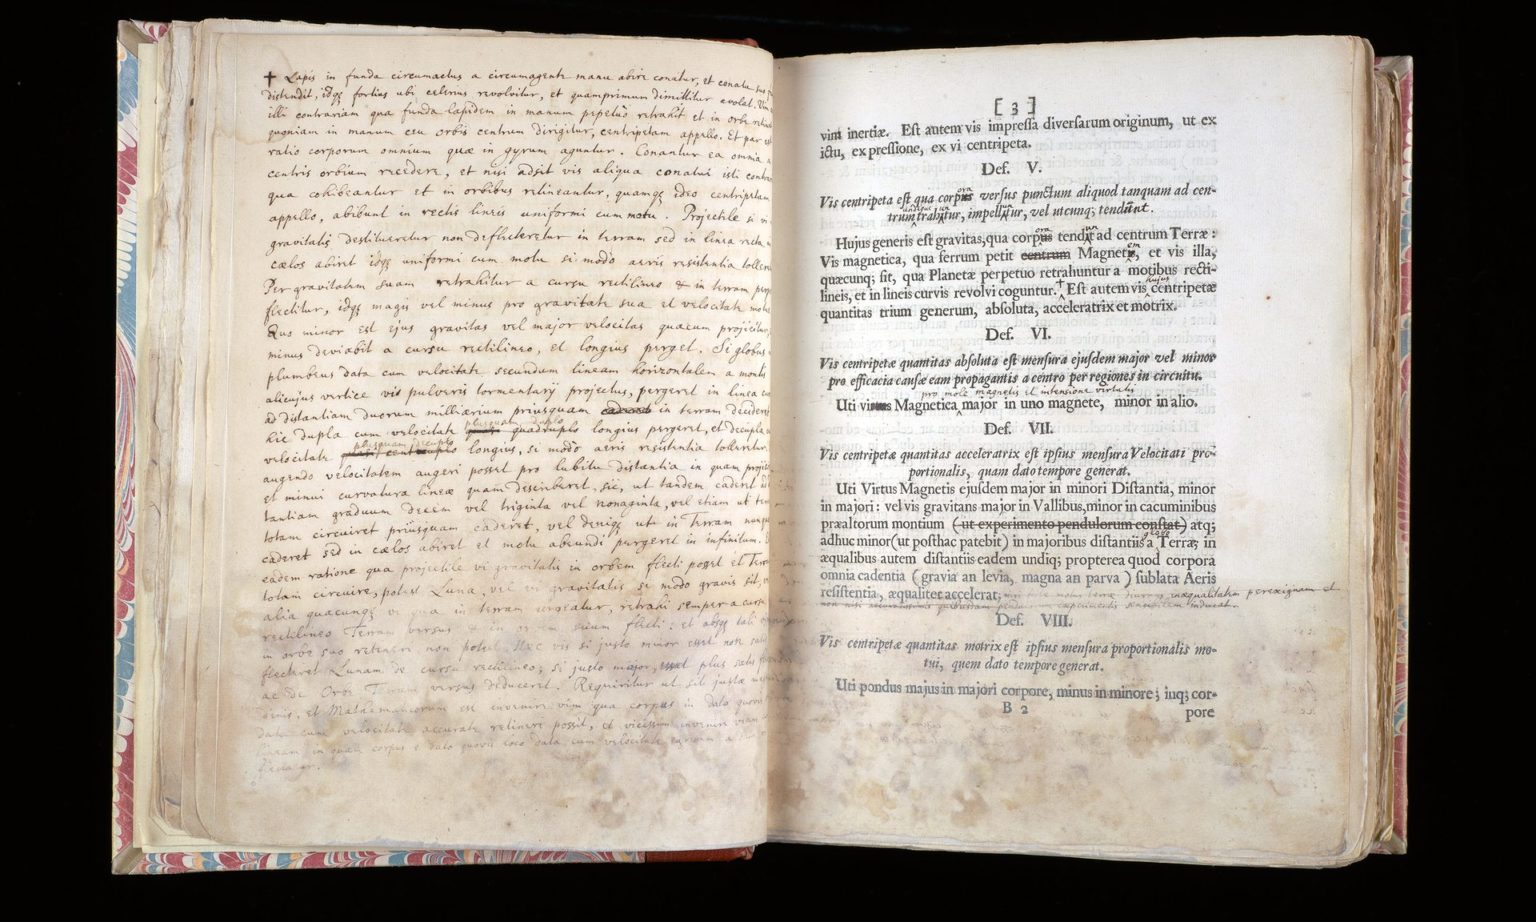 ✝ Lapis in funda circumactus a circumagente manu abire conatur, et conatu suo
distendit, idq; fortius ubi celerius revolvitur, et quamprimum dimittitur avolat.
illi contrariam qua funda lapidem in manum perpetuo retrahit et in orbe
quoniam in manum ceu orbis centrum dirigitur, centripetam appello. Et par
ratio corporum omnium quæ in gyrum aguntur. Conantur ea omnia a
centris orbium recedere, et nisi adsit vis aliqua conatui isti
qua cohibeantur et in orbibus retineantur, quamq; ideo centripetam
appello, abibunt in rectis lineis uniformi cum motu. Projectile si vi
gravitatis destitueretur non deflecteretur in terram sed in linea recta
cælos abiret idq; uniformi cum motu si modò aeris resistentia
Per gravitatem suam retrahitur a cursu rectilineo & in terram
flectitur, idq; magis vel minus pro gravitate sua et velocitate
Quo minor est ejus gravitas vel major velocitas quacum projicitur,
minus deviabit a cursu rectilineo, et longius perget. Si globus
plumbeus data cum velocitate secundum lineam horizontalem a montis
alicujus vertice vi pulveris tormentarij projectus, pergeret in linea
ad distantiam duorum milliarium priusquam caderet in terram
hic dupla cum velocitate plusquam duplo quadruplo longius pergeret, et decupla
velocitate plusquam decuplo centuplo longius, si modò aeris resistentia tolleretur.
augendo velocitatem augeri posset pro lubitu distantia in quam
et minui curvatura lineæ quam describeret, sic, ut tandem caderet
tantiam graduum decem vel triginta vel nonaginta, vel etiam ut
totam circuiret priusquam caderet, vel deniq; ut in Terram
caderet sed in cælos abiret et motu abeundi pergeret in infinitum.
eadem ratione qua projectile vi gravitatis in orbem flecti posset et
totam circuire, potest Luna, vel vi gravitatis si modo gravis sit,
alia quacunq; vi qua in terram urgeatur, retrahi semper a cursu
rectilineo Terram versus & in orbem suum flecti: et absq; tali
in orbe suo retineri non potest. Hæc vis si justo minor esset non
flecteret Lunam de cursu rectilineo; si justo major, plus satis
ac de Orbe Terram versus deduceret. Requiritur ut sit justæ
et Mathematicorum est invenire vim qua corpus in dato quovis
data cum velocitate accurate retineri possit, et vicissim invenire viam
in quam corpus e dato quovis loco data cum velocitate
[ 3 ]
vim inertiæ. Est autem vis impressa diversarum originum, ut ex
ictu, ex pressione, ex vi centripeta.
Def. V.
Vis centripeta est qua corpus ora versus punctum aliquod tanquam ad cen-
trum trahitur, impellitur, vel utcunq; tendunt.
Hujus generis est gravitas, qua corpus ora tendit ad centrum Terræ:
Vis magnetica, qua ferrum petit centrum Magnetis em, et vis illa,
quæcunq; sit, qua Planetæ perpetuo retrahuntur a motibus recti-
lineis, et in lineis curvis revolvi coguntur. ✝ Est autem vis hujus centripetæ
quantitas trium generum, absoluta, acceleratrix et motrix.
Def. VI.
Vis centripetæ quantitas absoluta est mensura ejusdem major vel minor
pro efficacia causæ eam propagantis a centro per regiones in circuitu.
pro mole magnetis et intensione virtutis
Uti virtus Magnetica major in uno magnete, minor in alio.
Def. VII.
Vis centripetæ quantitas acceleratrix est ipsius mensura Velocitati pro-
portionalis, quam dato tempore generat.
Uti Virtus Magnetis ejusdem major in minori Distantia, minor
in majori: vel vis gravitans major in Vallibus, minor in cacuminibus
præaltorum montium (ut experimento pendulorum constat) atq;
adhuc minor (ut posthac patebit) in majoribus distantiis a globo Terræ; in
æqualibus autem distantiis eadem undiq; propterea quod corpora
omnia cadentia (gravia an levia, magna an parva) sublata Aeris
resistentia, æqualiter accelerat, inæqualitatem perexiguam et
Def. VIII.
Vis centripetæ quantitas motrix est ipsius mensura proportionalis mo-
tui, quem dato tempore generat.
Uti pondus majus in majori corpore, minus in minore; inq; cor-
B 2
pore